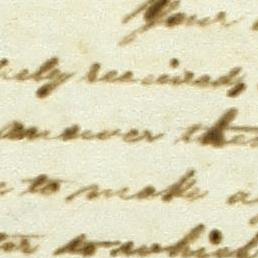 Your
received,
answer the
to make a
to which